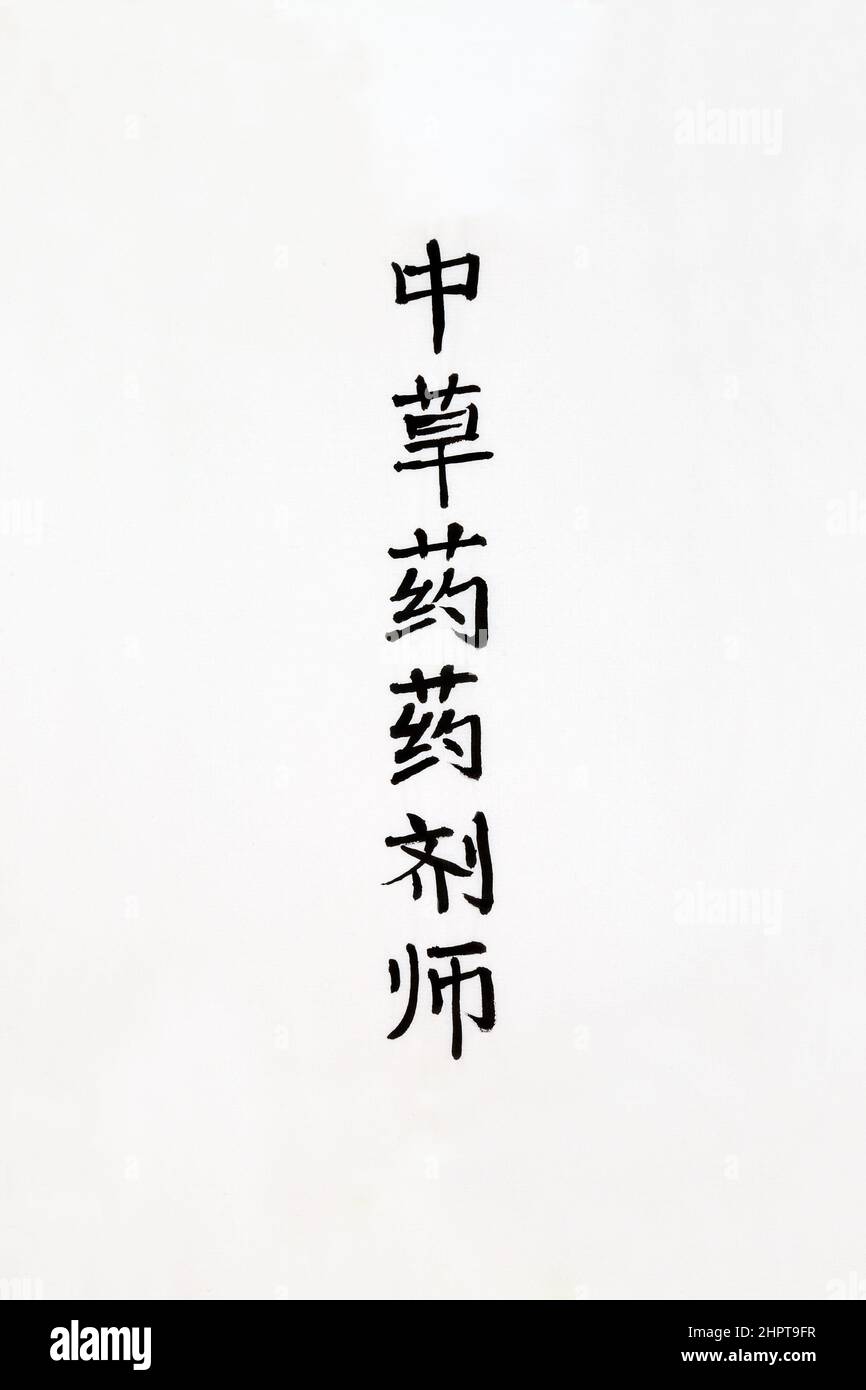 中草药药剂师
alamy
alamy
alamy
Image ID: 2HPT9FR
www.alamy.com